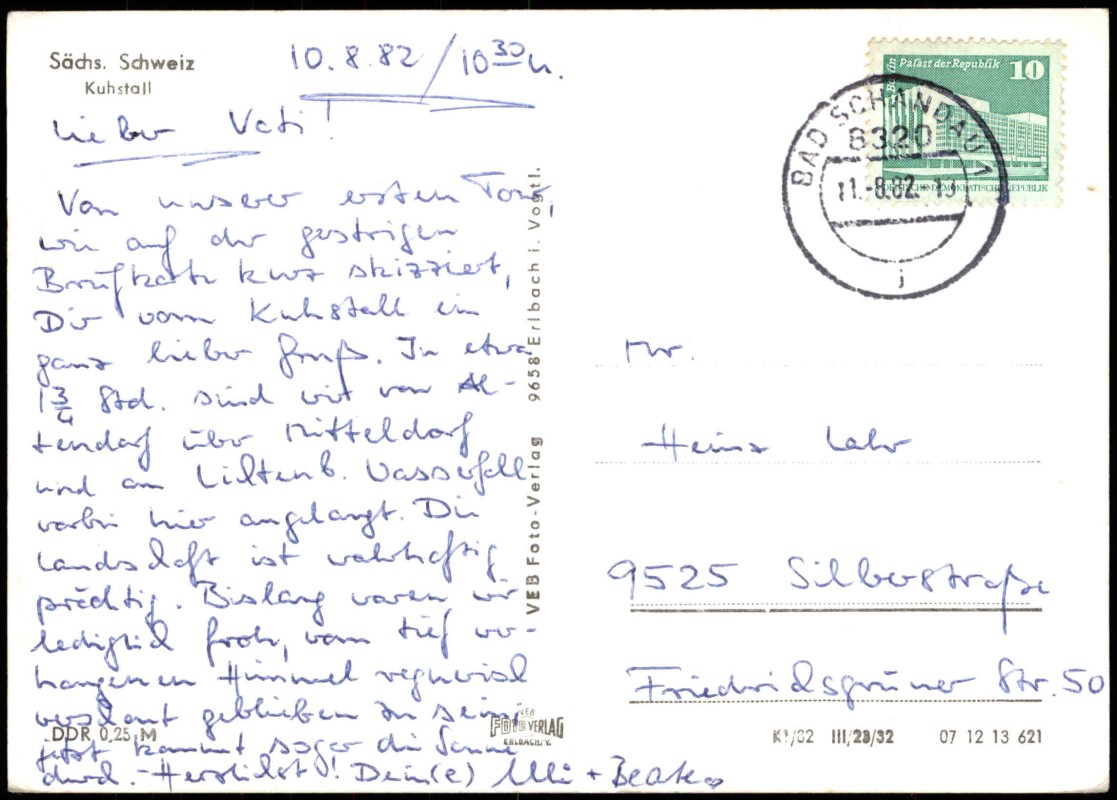 Sächs. Schweiz
Kuhstall
10.8.82 / 10³⁰ h.
Lieber Vati!
Von unserer ersten Tour,
wie auf der gestrigen
Briefkarte kurz skizziert,
Dir vom Kuhstall ein
ganz lieber Gruß. In etwa
1 3/4 Std. sind wir von Al-
tendorf über Mitteldorf
und am Lichtenh. Wasserfall
vorbei hier angelangt. Die
Landschaft ist wahrhaftig
prächtig. Bislang waren wir
lediglich froh, vom tief ver-
hangenen Himmel regnerisch
verschont geblieben zu sein;
jetzt kommt sogar die Sonne
durch. - Herzlichst! Dein(e) Ulli + Beate
DDR 0,25 M
VEB Foto-Verlag 9658 Erlbach i. Vogtl.
VEB
FOTO VERLAG
ERLBACH/V.
Berlin Palast der Republik 10
DEUTSCHE DEMOKRATISCHE REPUBLIK
BAD SCHANDAU 1
8320
11.-8.82.-13
i
Hr.
Heinz Lahr
9525 Silberstraße
Friedrichsgrüner Str. 50
K1/82 III/28/32 07 12 13 621